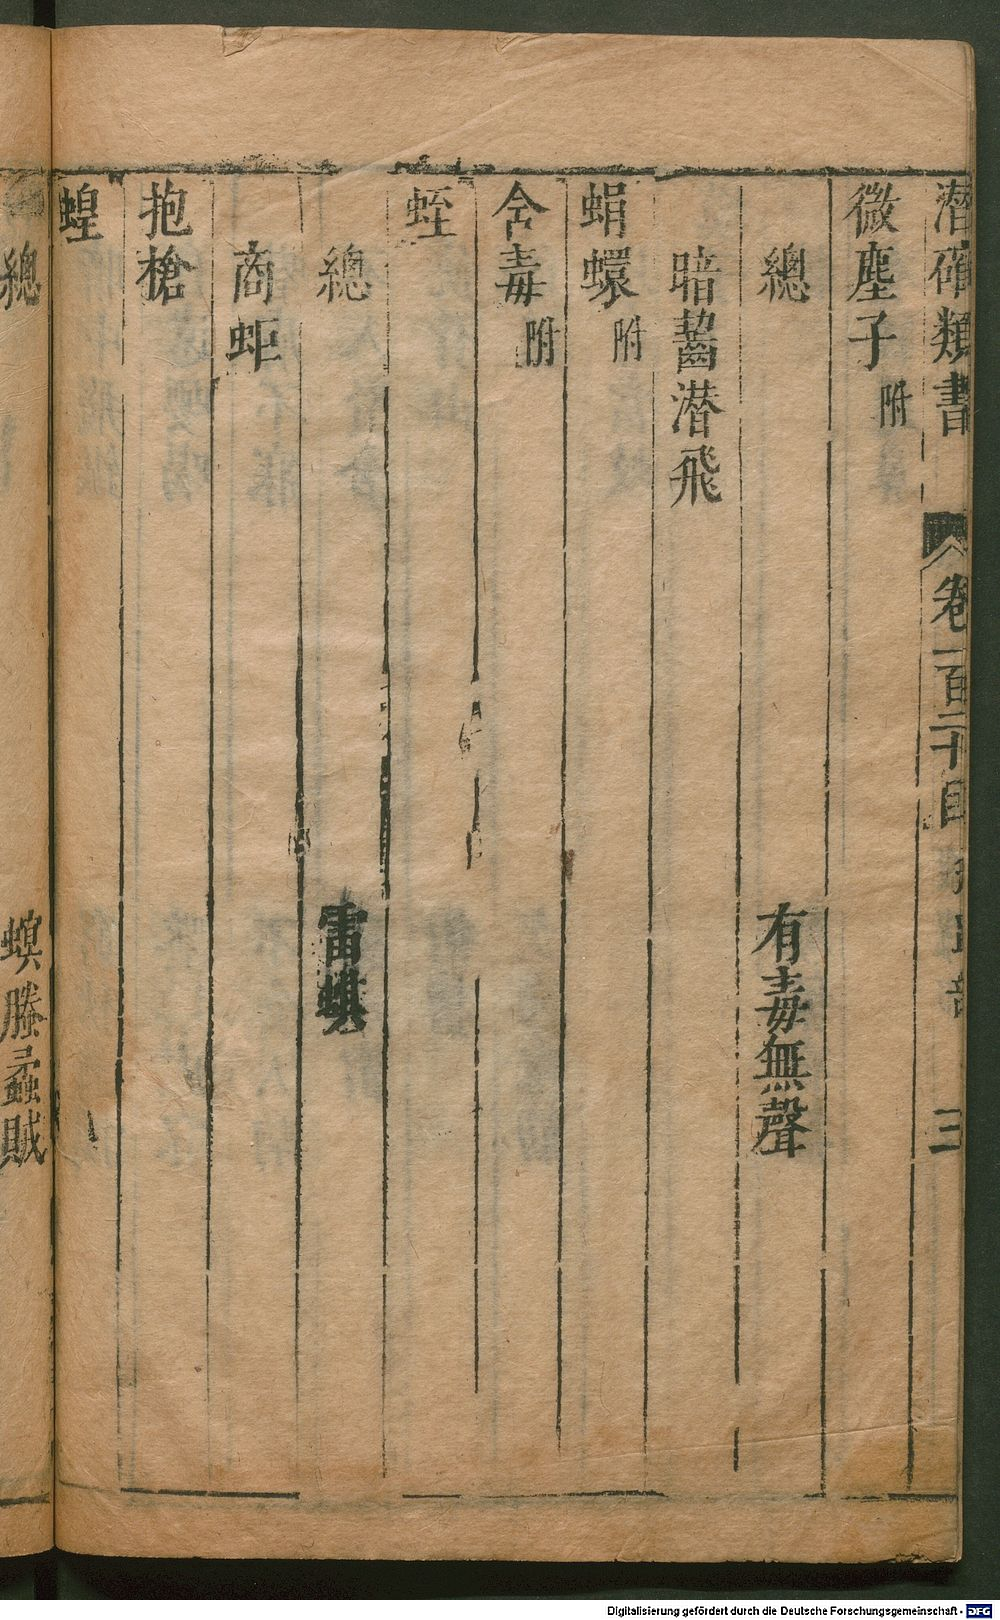 潛確類書 卷一百二十目 三
微塵子附
總 有毒無聲
暗齧潛飛
蜎蠉附
含毒附
蛭
總 雷蜞
商蚷
抱槍
蝗
總 螟螣蟊賊
Digitalisierung gefördert durch die Deutsche Forschungsgemeinschaft - DFG